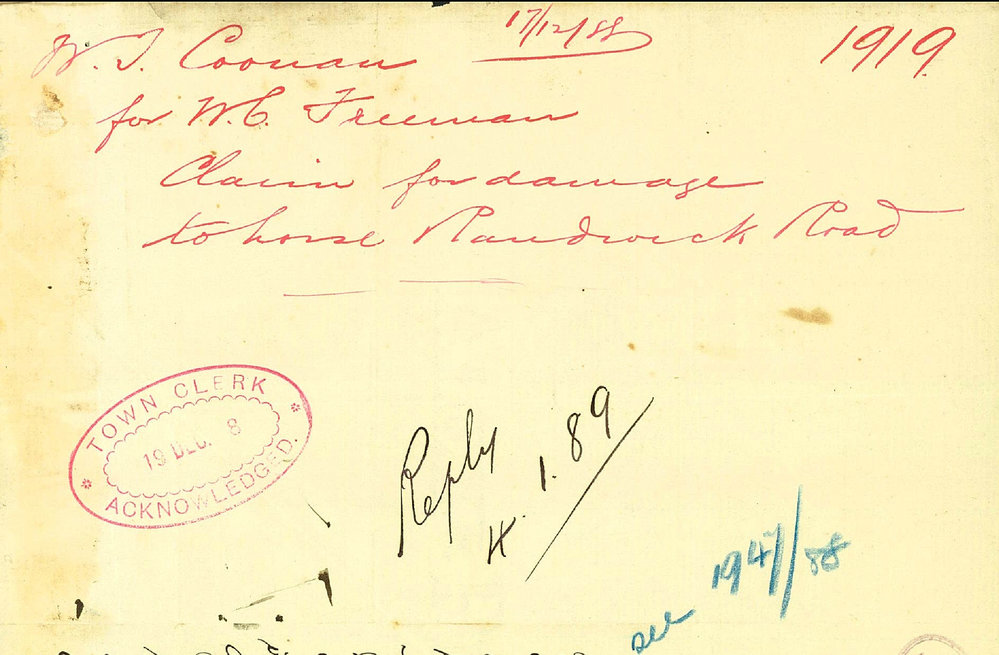 17/12/88
1919
W. J. Coonan
for W. C. Freeman
Claim for damage
to horse Randwick Road
TOWN CLERK
19 DEC. 8
ACKNOWLEDGED.
Reply
4. 1. 89
see 1947/88